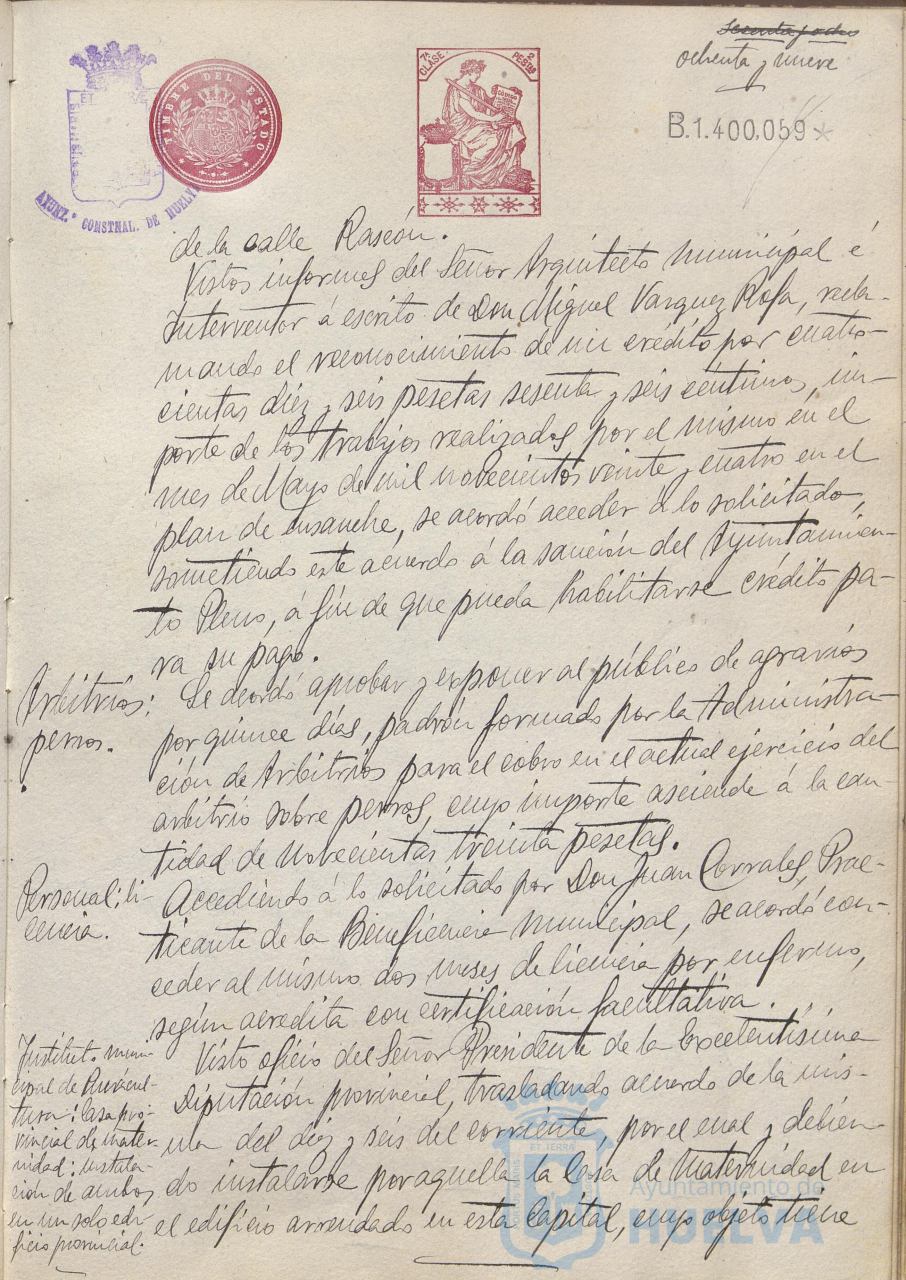 ochenta y nueve
B.1.400,059*
TIMBRE DEL ESTADO
7ª CLASE. 2 PESETAS
AYUNZ.º CONSTNAL. DE HUELVA
de la calle Rascón.
Vistos informes del Señor Arquitecto municipal é
Interventor á escrito de Don Miguel Vazquez Rofa, recla-
mando el reconocimiento de un crédito por cuatro-
cientas diez y seis pesetas sesenta y seis céntimos, im-
porte de los trabajos realizados por el mismo en el
mes de Mayo de mil novecientos veinte y cuatro en el
plan de ensanche, se acordó acceder á lo solicitado,
sometiendo este acuerdo á la sanción del Ayuntamien-
to Pleno, á fin de que pueda habilitarse crédito pa-
ra su pago.
Arbitrios:
perros.
Se acordó aprobar y exponer al público de agravios
por quince días, padrón formado por la Administra-
ción de Arbitrios para el cobro en el actual ejercicio del
arbitrio sobre perros, cuyo importe asciende á la can-
tidad de novecientas treinta pesetas.
Personal: li-
cencia.
Accediendo á lo solicitado por Don Juan Corrales, Prac-
ticante de la Beneficencia municipal, se acordó con-
ceder al mismo dos meses de licencia por enfermo,
según acredita con certificación facultativa.
Instituto muni-
cipal de Puericul-
tura: Casa pro-
vincial de mater-
nidad: instala-
ción de ambos
en un solo edi-
ficio provincial.
Visto oficio del Señor Presidente de la Excelentísima
Diputación provincial, trasladando acuerdo de la mis-
ma del diez y seis del corriente, por el cual y debien-
do instalarse por aquella la Casa de Maternidad en
el edificio arrendado en esta Capital, cuyo objeto tiene
Ayuntamiento de
HUELVA